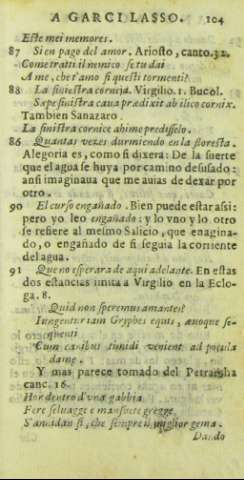 A GARCI LASSO. 104
Este mei memores.
87 Si en pago del amor. Ariosto, canto.32.
Come tratti il nemico se tu dai
A me, che t'amo si questi tormenti?
88 La siniestra corneja. Virgilio. 1. Bucol.
Sæpe sinistra caua prædixit ab ilice cornix.
Tambien Sanazaro.
La sinistra cornice ahime predisselo.
86 Quantas vezes durmiendo en la floresta.
Alegoria es, como si dixera: De la suerte
que el agua se huya por camino desusado:
ansi imaginaua que me auias de dexar por
otro.
90 El curso engañado. Bien puede estar assi:
pero yo leo engañado: y lo vno y lo otro
se refiere al mesmo Salicio, que enagina-
do, o engañado de si seguia la corriente
del agua.
91 Que no esperara de aqui adelante. En estas
dos estácias imita a Virgilio en la Eclo-
ga. 8.
Quid non speremus amantes?
Iungentur iam Gryphes equis, æuoque se-
quenti
Cum canibus timidi venient ad pocula
damę.
Y mas parece tomado del Petrarcha
canc. 16.
Hor dentro d'vna gabbia
Fere seluagge e mansuete gregge
S'annidan si, che sempre il miglior geme.
Dando